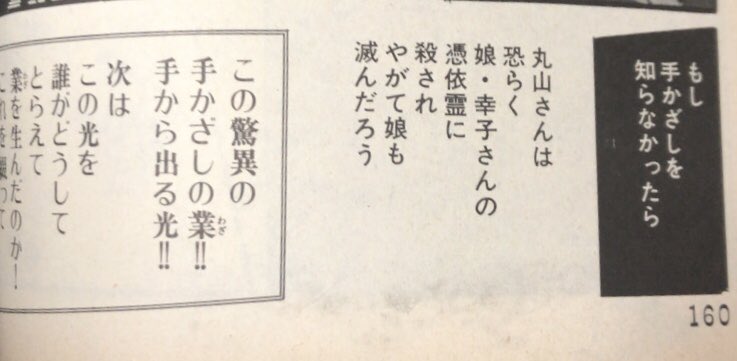 もし
手かざしを
知らなかったら
丸山さんは
恐らく
娘・幸子さんの
憑依霊に
殺され
やがて娘も
滅んだろう
この驚異の
手かざしの業!!
わざ
手から出る光!!
次は
この光を
誰がどうして
とらえて
業を生んだのか!
160